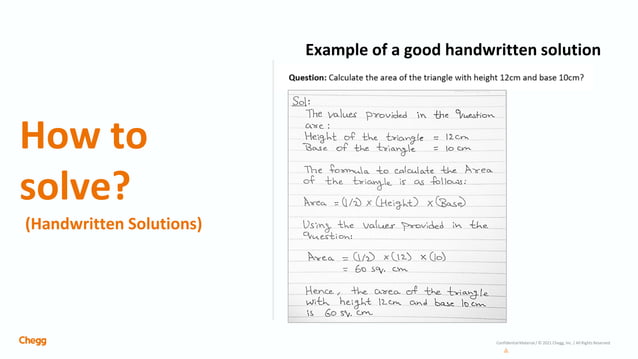 Example of a good handwritten solution
Question: Calculate the area of the triangle with height 12cm and base 10cm?
How to
solve?
(Handwritten Solutions)
Sol:
The values provided in the question
are:
Height of the triangle = 12cm
Base of the triangle = 10 cm
The formula to calculate the Area
of the triangle is as follows:
Area = (1/2) × (Height) × (Base)
Using the values provided in the
question:
Area = (1/2) × (12) × (10)
= 60 sq. cm
Hence, the area of the triangle
with height 12cm and base 10cm
is 60 sq. cm
Chegg
Confidential Material / © 2021 Chegg, Inc. / All Rights Reserved